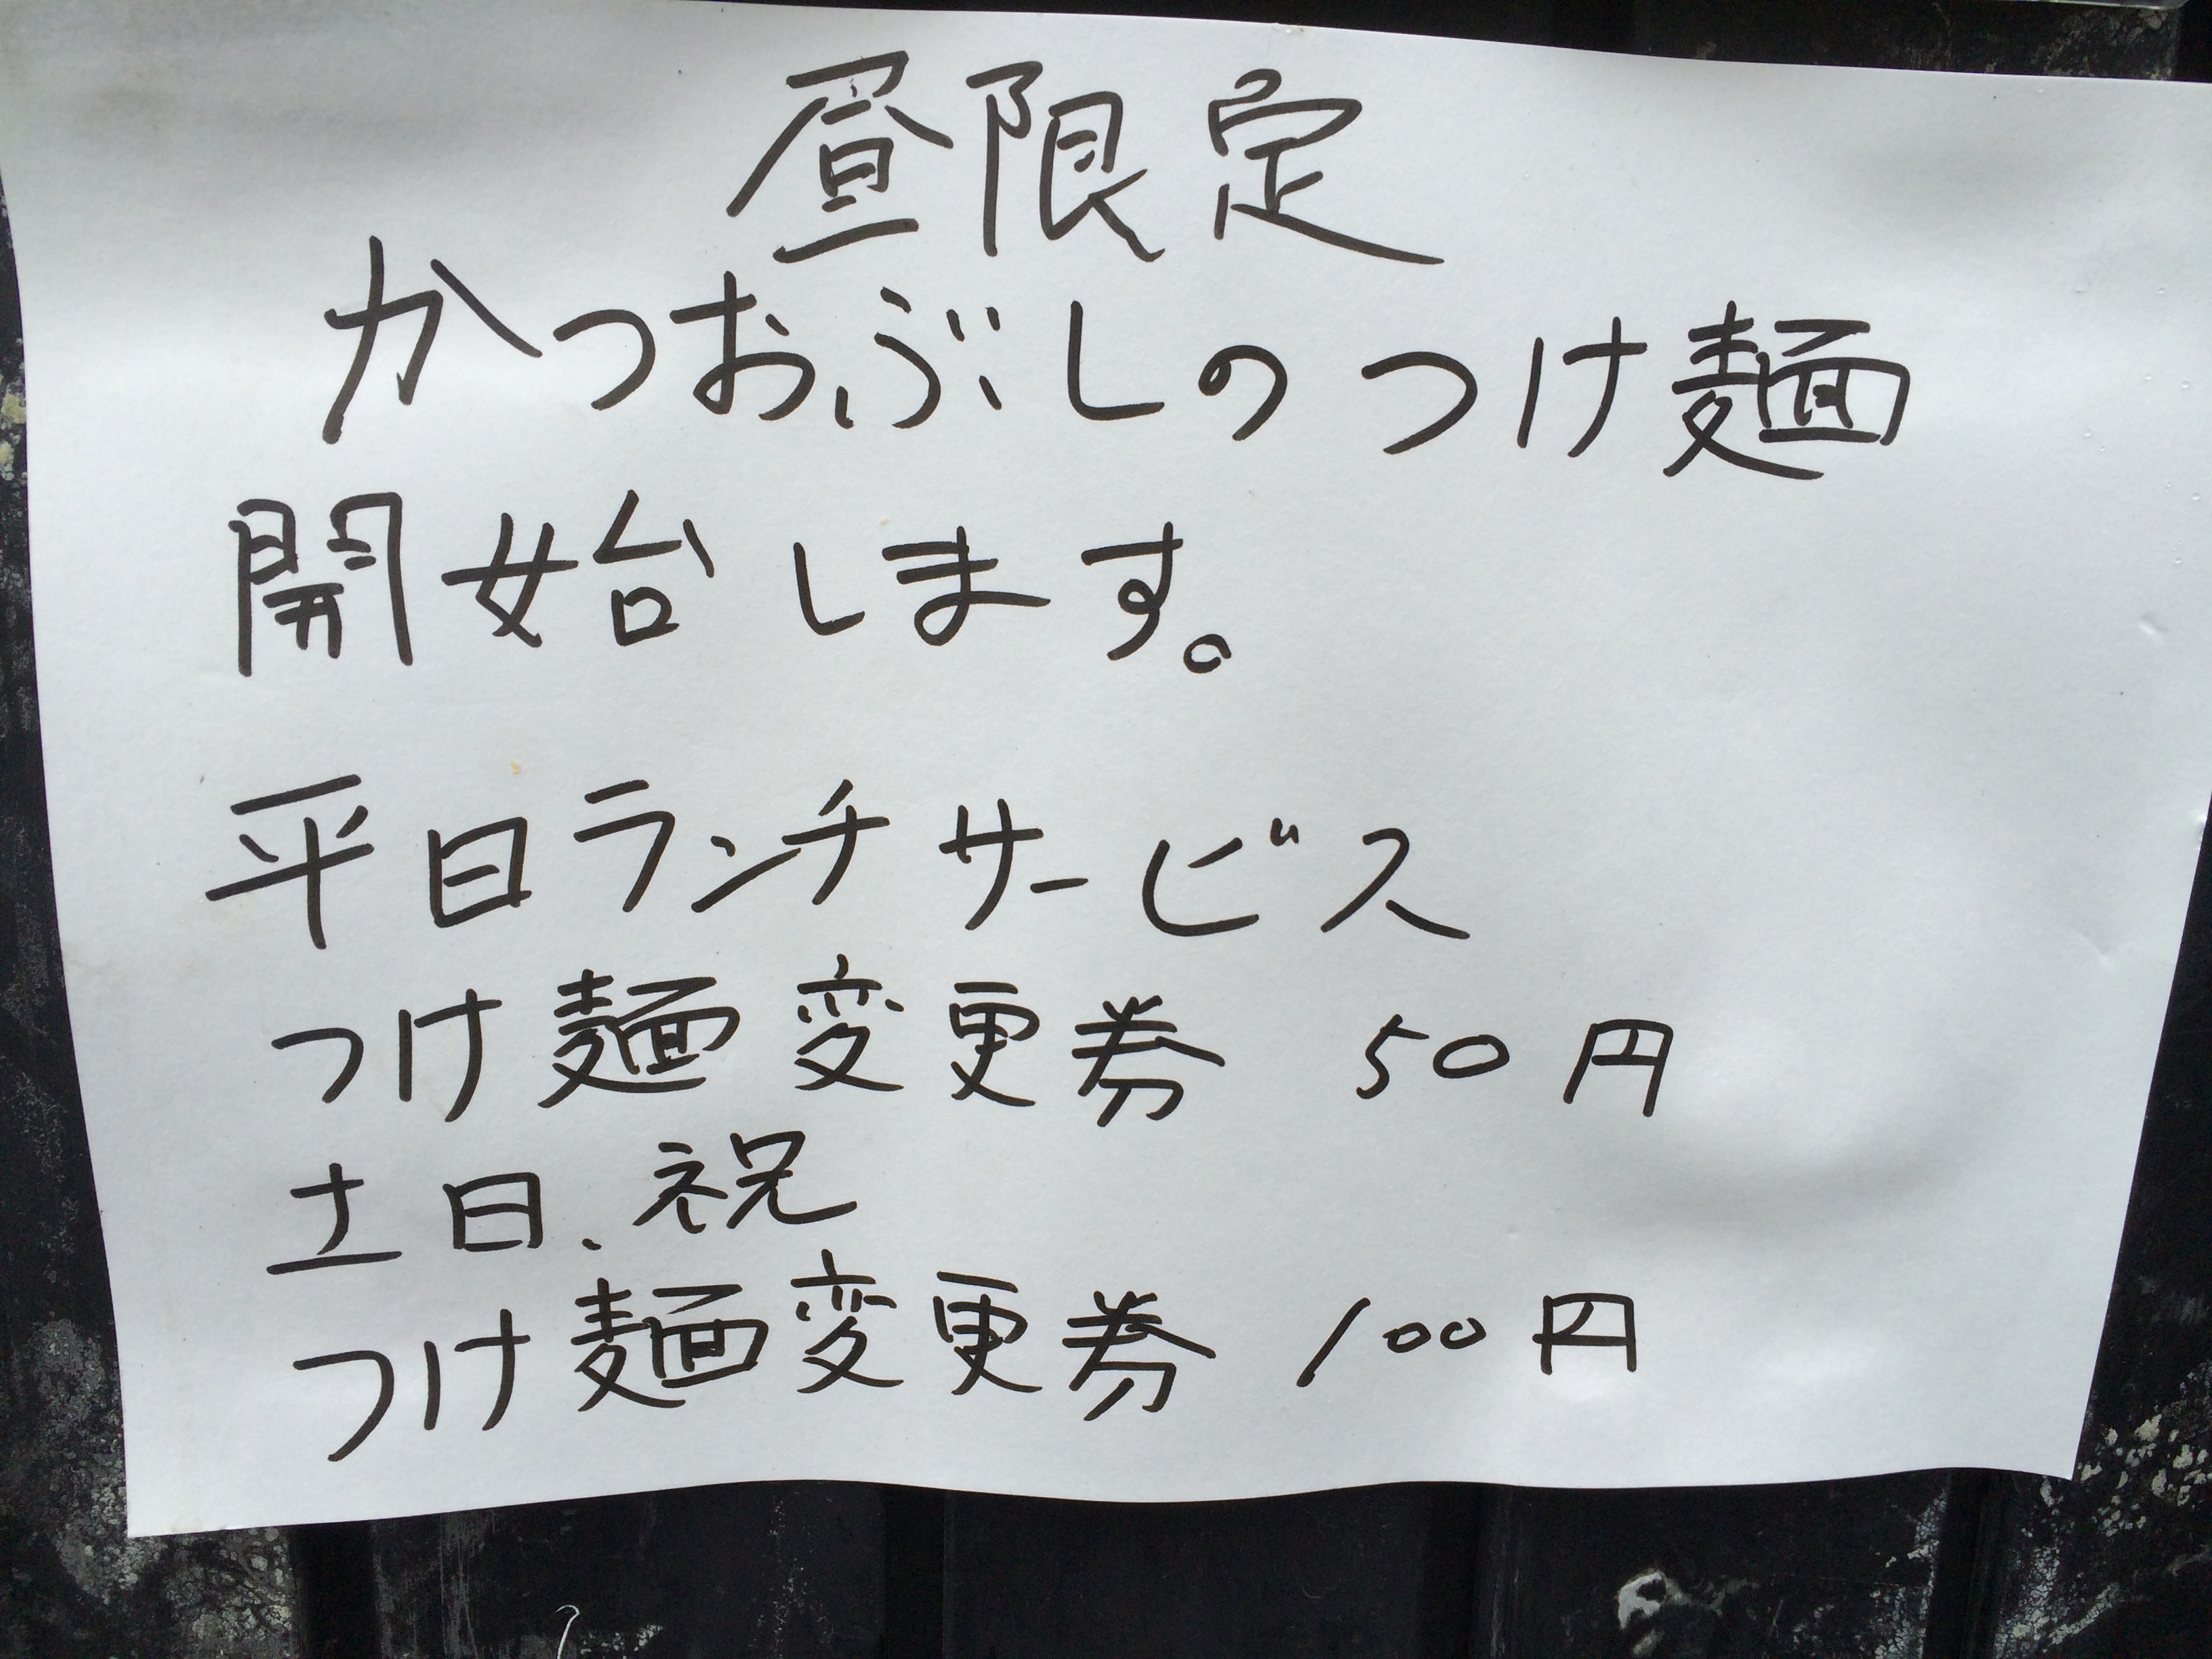 昼限定
かつおぶしのつけ麺
開始します。
平日ランチサービス
つけ麺変更券 50円
土日、祝
つけ麺変更券 100円